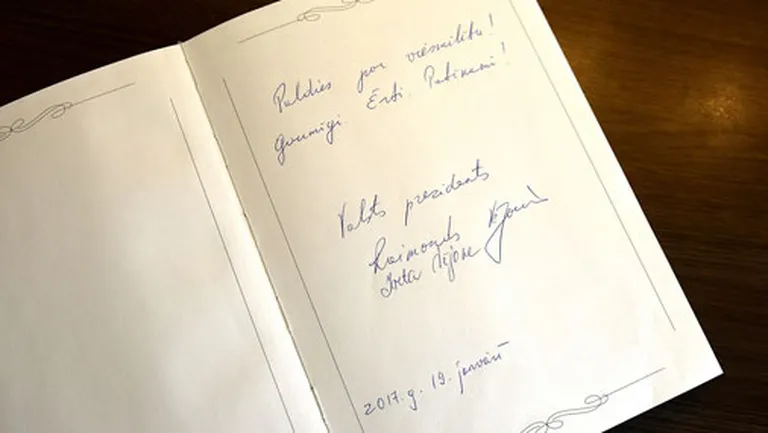 Paldies par viesmīlību!
Garmīgi. Ērti. Patīkami!
Valsts prezidents
Raimonds Vējonis
Iveta Vējone
2017. g. 19. janvārī